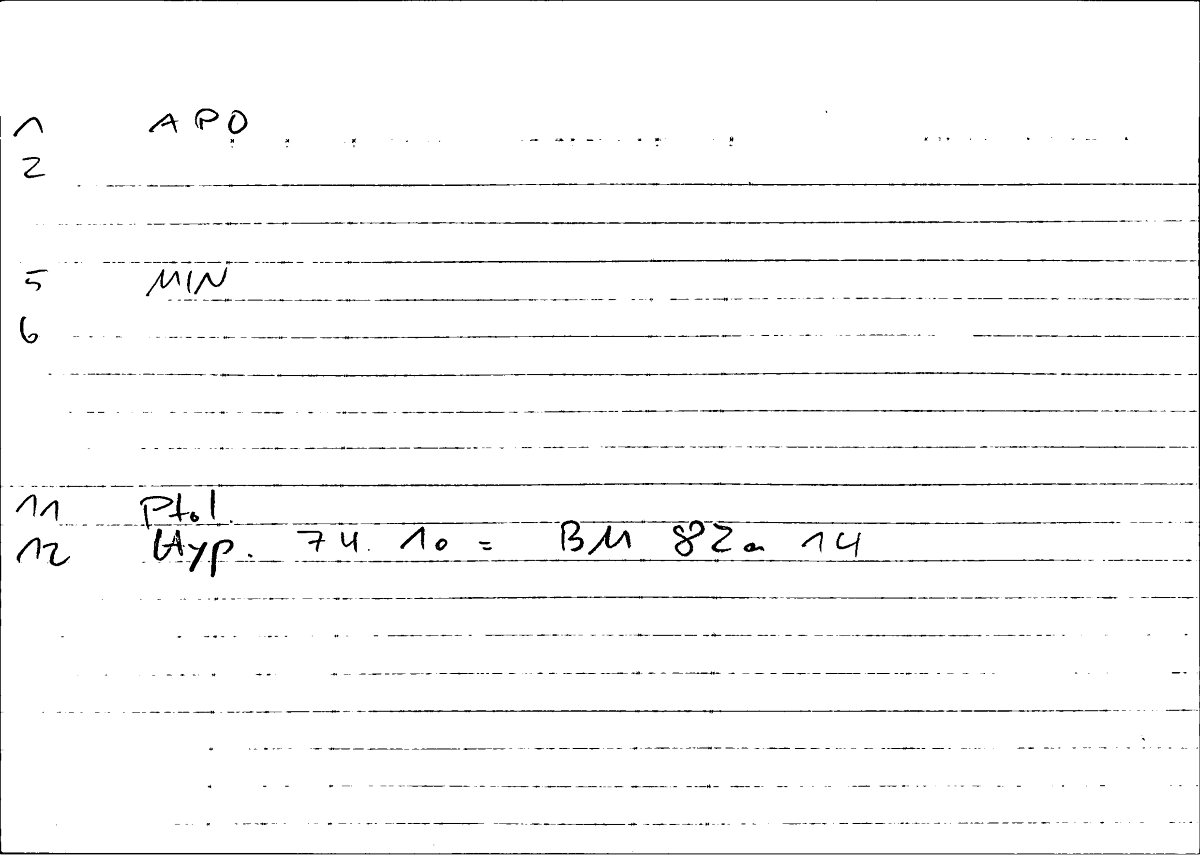 1 APO
2
5 MIN
6
11 Ptol.
12 Hyp. 74. 10 = BM 82a 14